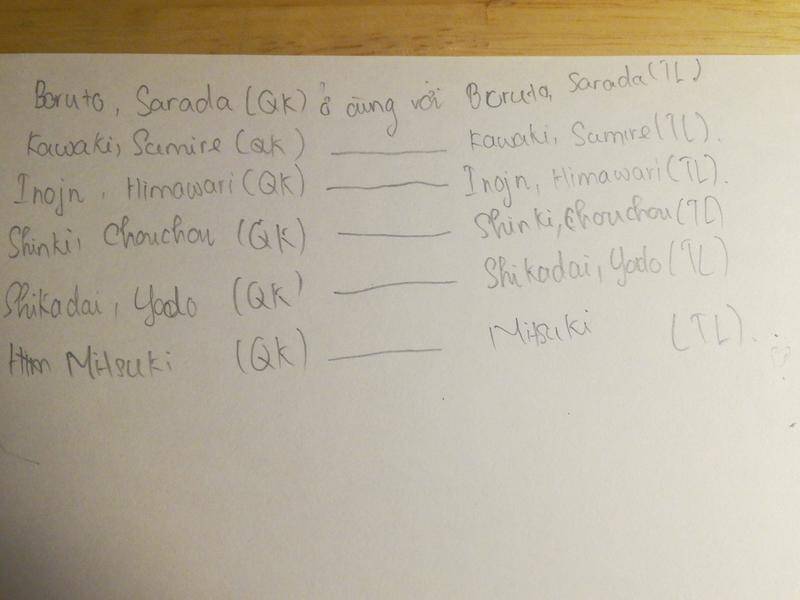 Boruto, Sarada (QK) ở cùng với Boruto, Sarada (TL)
Kawaki, Sumire (QK) ——— Kawaki, Sumire (TL).
Inojn, Himawari (QK) ——— Inojn, Himawari (TL).
Shinki, Chouchou (QK) ——— Shinki, Chouchou (TL)
Shikadai, Yodo (QK) ——— Shikadai, Yodo (TL)
Mitsuki (QK) ——— Mitsuki (TL).